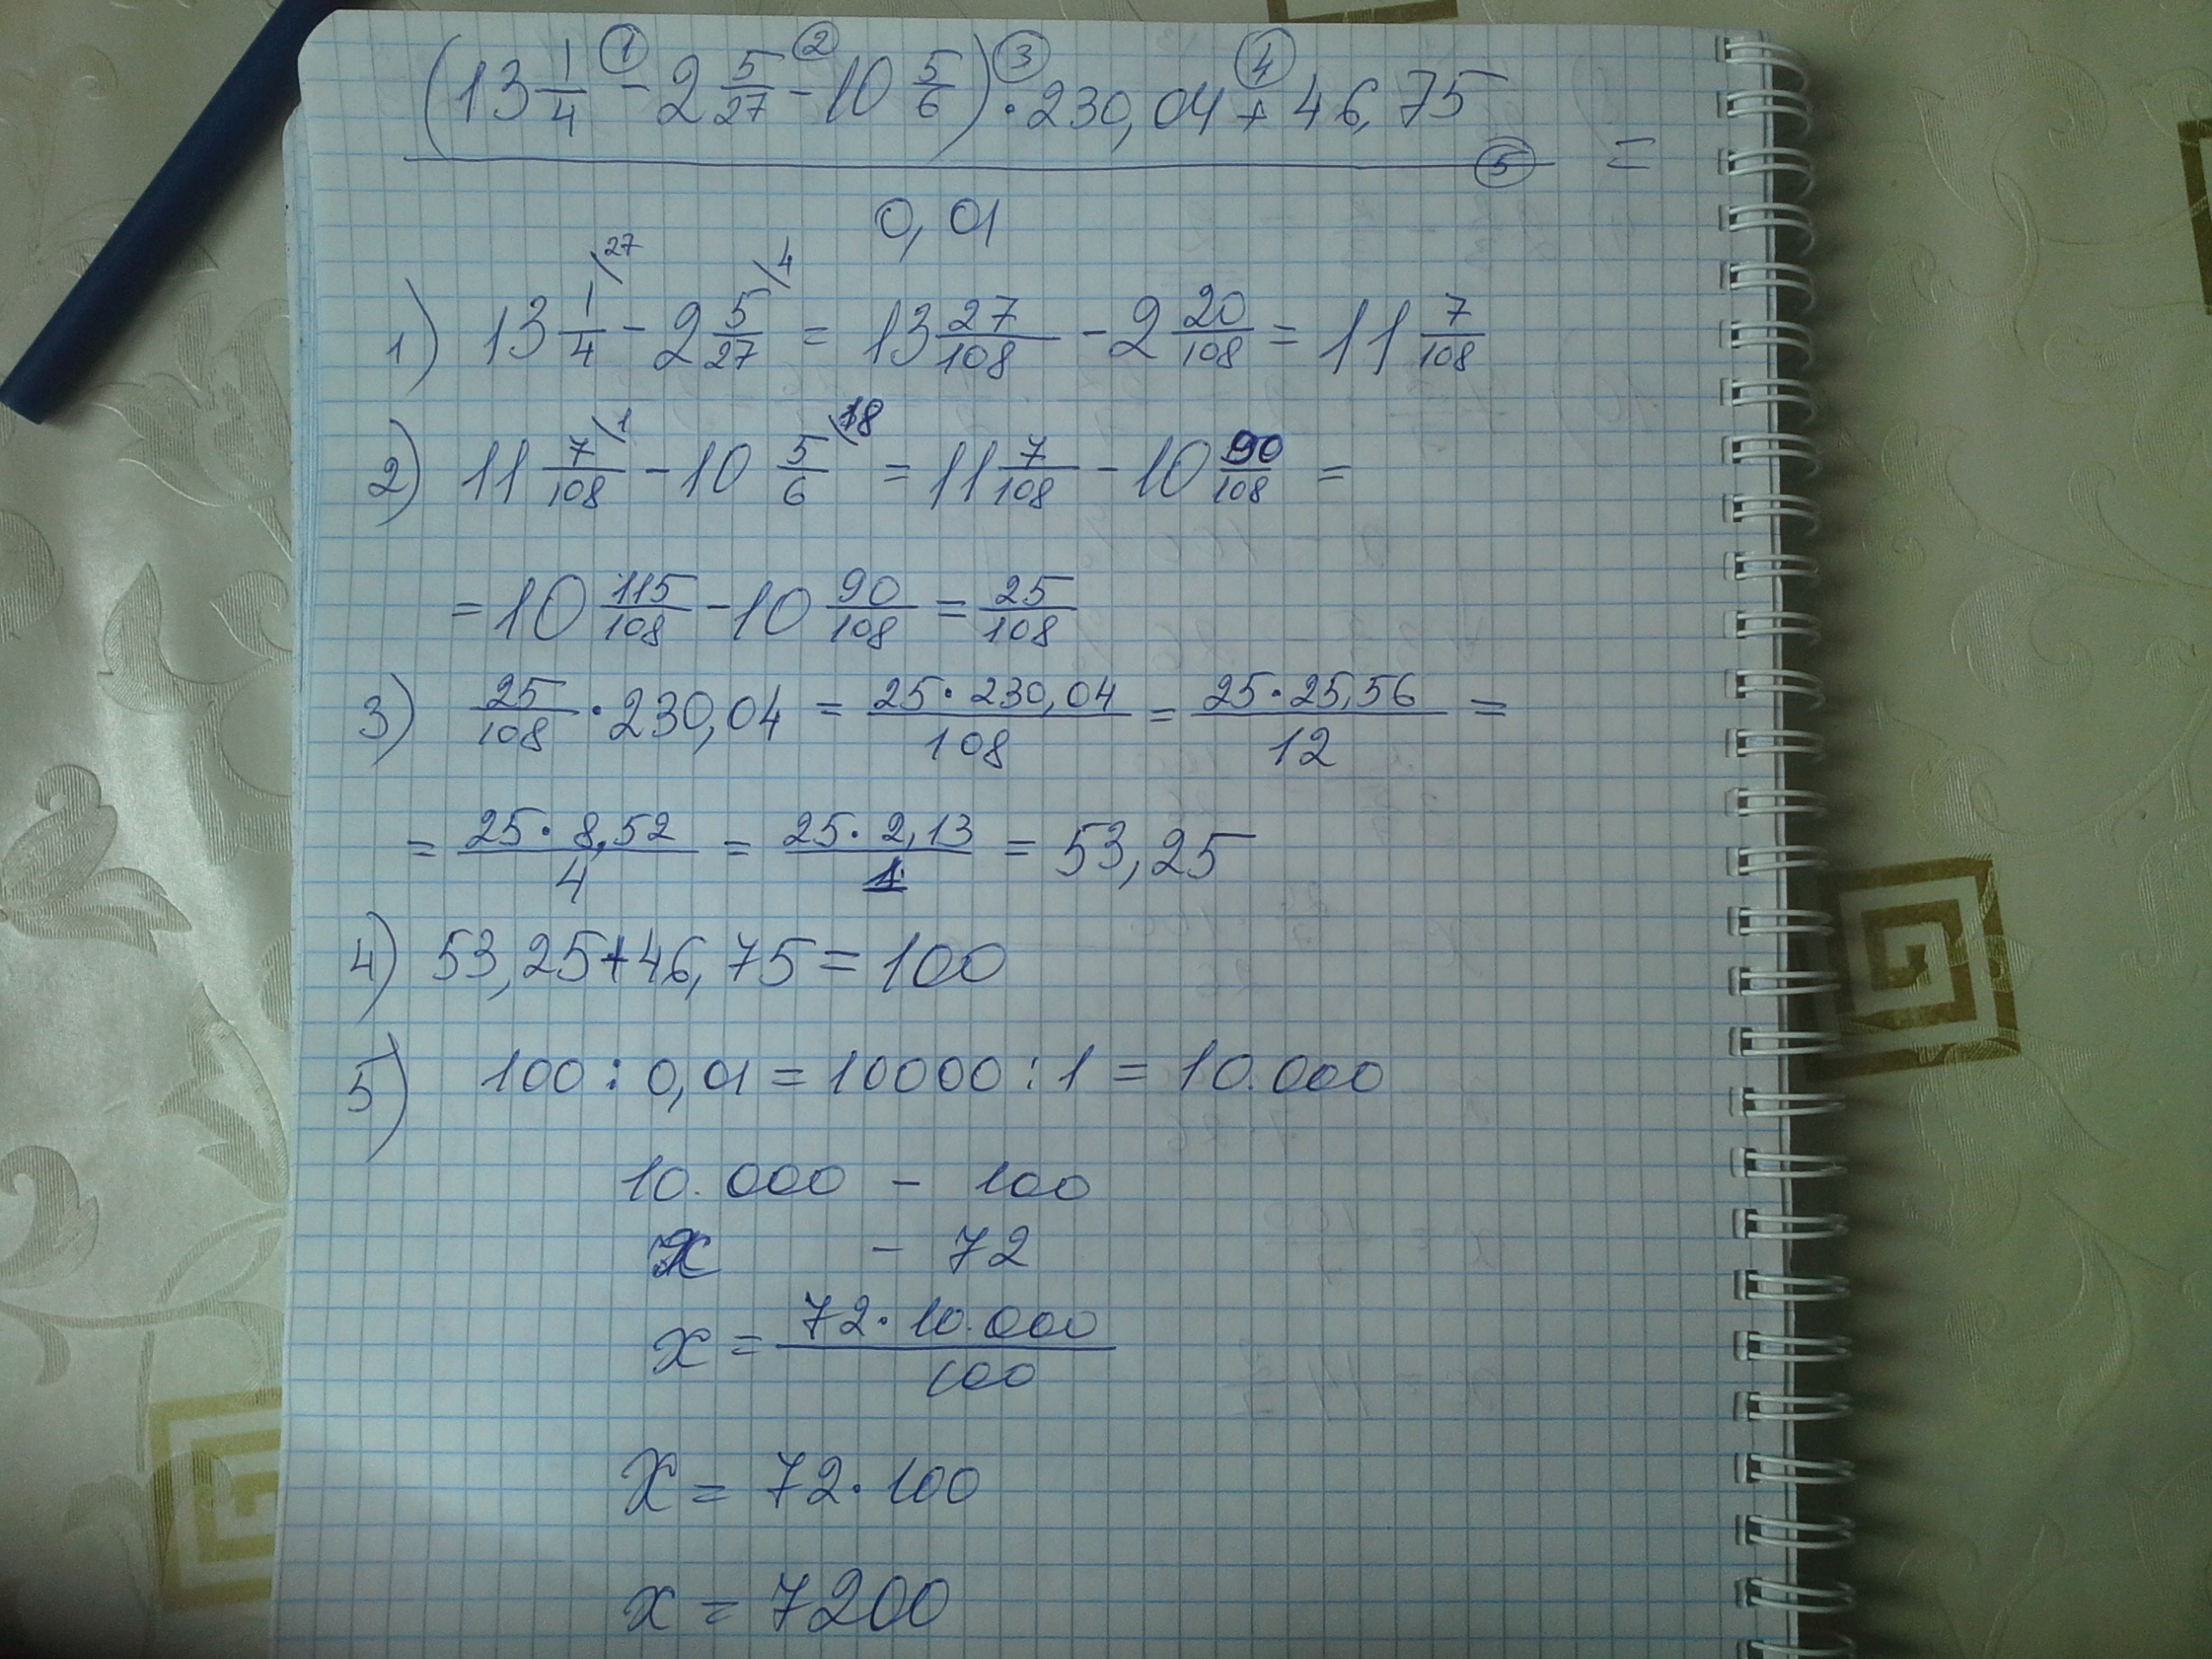 ① ② ③ ④
(13 1/4 - 2 5/27 - 10 5/6) · 230,04 + 46,75
⑤ =
0,01
1) 13 1/4 \27 - 2 5/27 \4 = 13 27/108 - 2 20/108 = 11 7/108
2) 11 7/108 \1 - 10 5/6 \18 = 11 7/108 - 10 90/108 =
= 10 115/108 - 10 90/108 = 25/108
3) 25/108 · 230,04 = 25·230,04/108 = 25·25,56/12 =
= 25·8,52/4 = 25·2,13/1 = 53,25
4) 53,25+46,75=100
5) 100 : 0,01 = 10000 : 1 = 10.000
10.000 - 100
x - 72
x = 72·10.000/100
x = 72·100
x = 7200